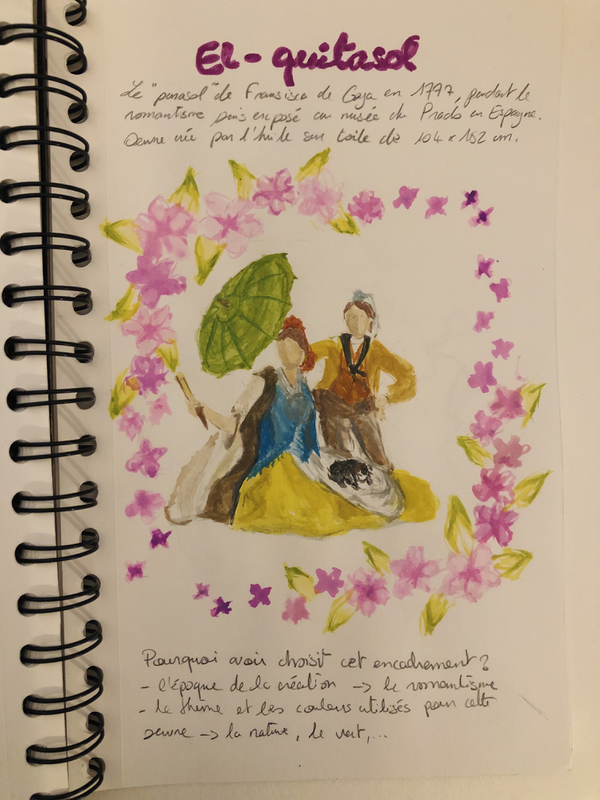 El-quitasol
Le "parasol" de Fransisco de Goya en 1777, pendant le
romantisme puis exposé au musée du Prado en Espagne.
Oeuvre crée par l'huile sur toile de 104 x 152 cm.
Pourquoi avoir choisit cet encadrement ?
- l'époque de la création -> le romantisme
- le thème et les couleurs utilisés pour cette
oeuvre -> la nature, le vert,...